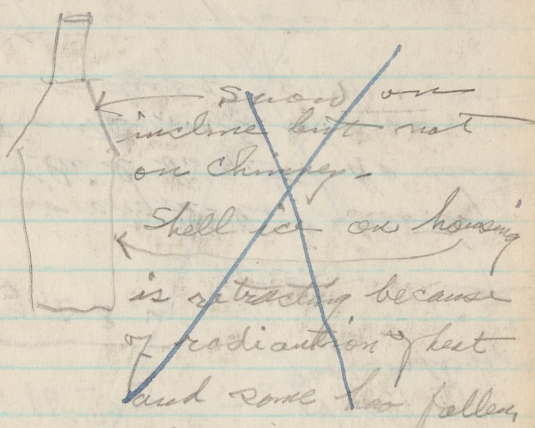 Snow on
incline but not
on Chimney -
Shell ice on housing
is retracting because
of radiaution of heat
and some has fallen,